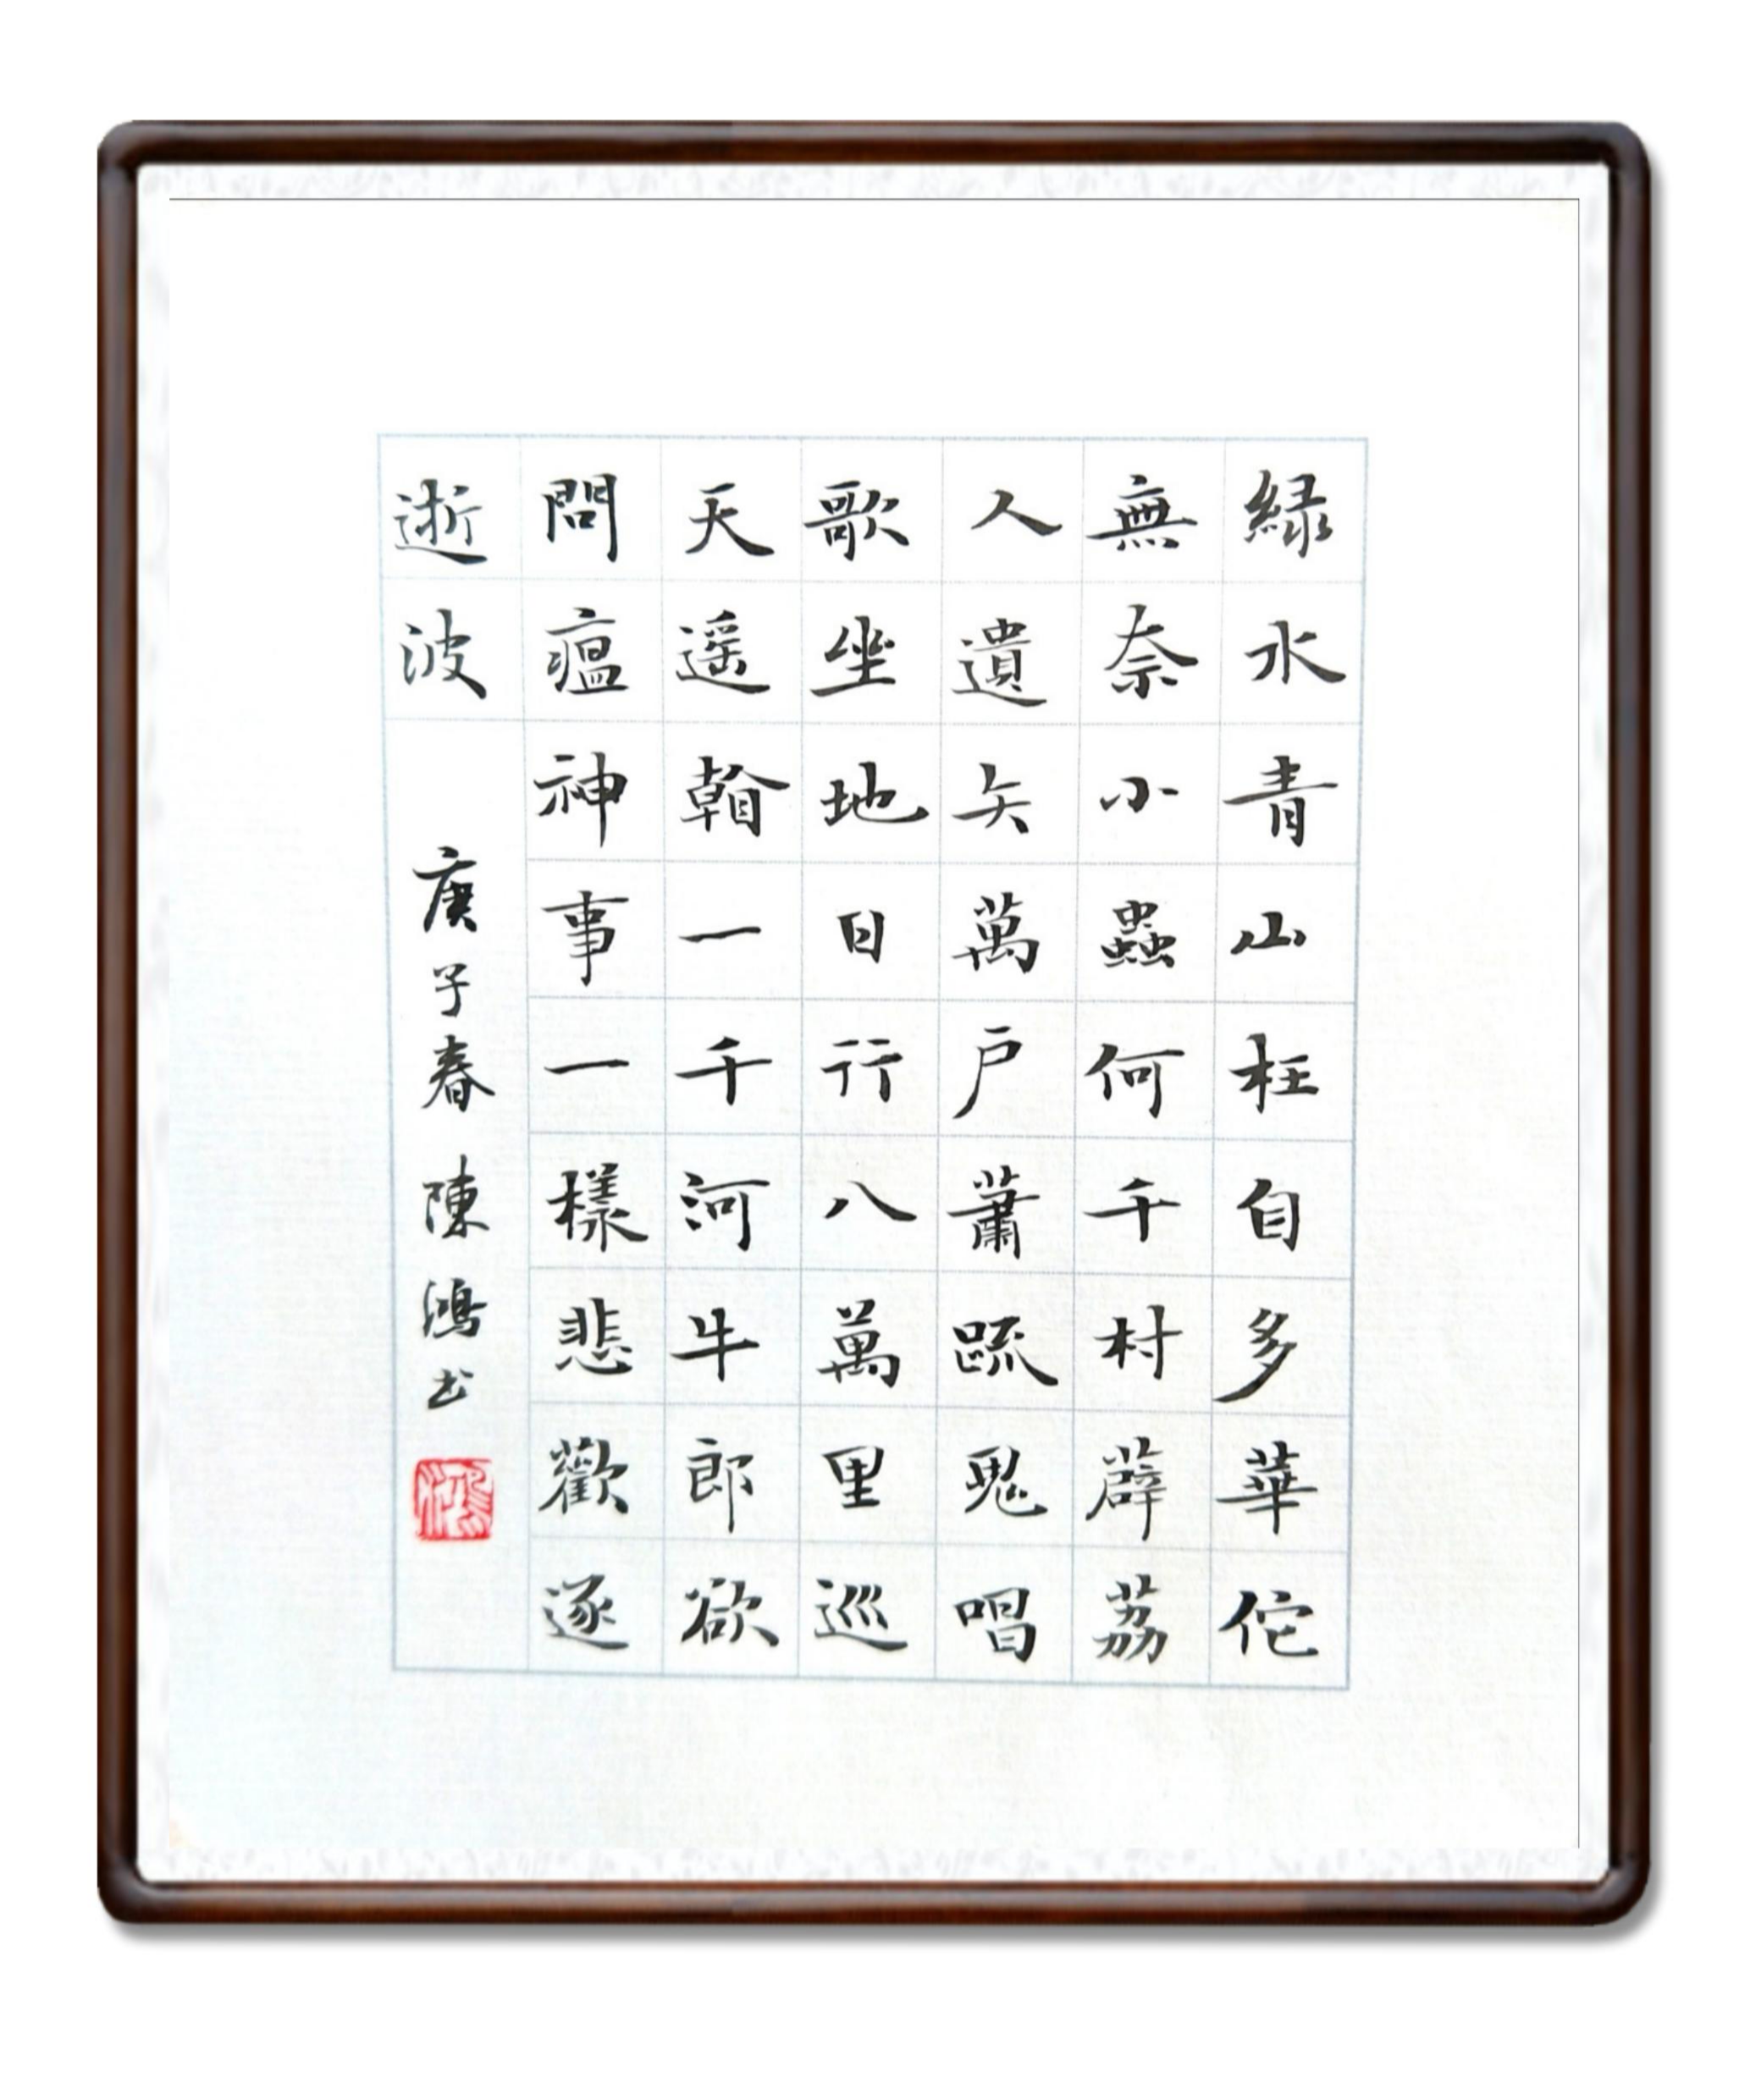 緑水青山枉自多華佗
無奈小蟲何千村薜荔
人遺矢萬户蕭䟽鬼唱
歌坐地日行八萬里巡
天遥看一千河牛郎欲
問瘟神事一樣悲歡逐
逝波
庚子春 陳鴻书
鴻